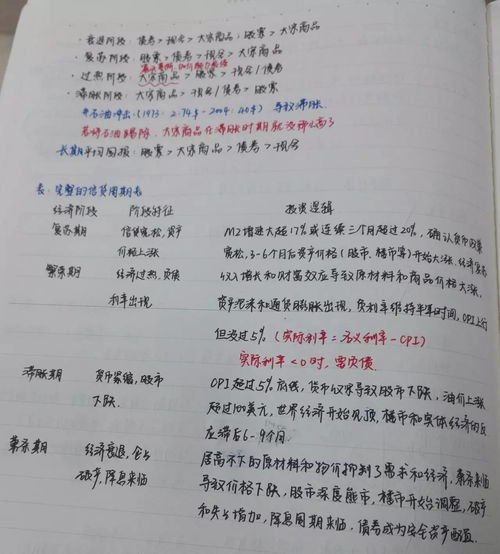 · 衰退阶段：债券 > 现金 > 大宗商品；股票 > 大宗商品
· 复苏阶段：股票 > 债券 > 现金 > 大宗商品
· 过热阶段：大宗商品 > 股票 > 现金/债券
· 滞胀阶段：大宗商品 > 现金/债券 > 股票
石油冲击（1973：2.74$ - 2004：40$）导致滞胀。
若将石油剔除，大宗商品在滞胀时期就没那么高了
长期平均回报：股票 > 大宗商品 > 债券 > 现金
表：完整的信贷周期表
经济阶段 阶段特征 投资逻辑
复苏期 信贷宽松，资产 M2增速大超17%或连续三个月超过20%，确认货币政策
价格上涨 宽松，3-6个月后资产价格（股市、楼市等）开始大涨。经济复苏
繁荣期 经济过热，负债 收入增长和财富效应导致原材料和商品价格大涨。
利率出现 资产泡沫和通货膨胀出现，负利率维持半年时间，CPI上行
但没过5%（实际利率=名义利率-CPI）
实际利率<0时，需负债
滞胀期 货币紧缩，股市 CPI超过5%底线，货币收紧导致股市下跌，油价上涨
下跌. 超过100美元，世界经济开始见顶，楼市和实体经济的反
应滞后6-9个月.
萧条期 经济衰退，企业 居高不下的原材料和物价抑制了需求和经济，萧条来临
破产，降息来临 导致价格下跌，股市深度熊市，楼市开始调整，破产
和失业增加，降息周期来临，债券成为安全资产配置.